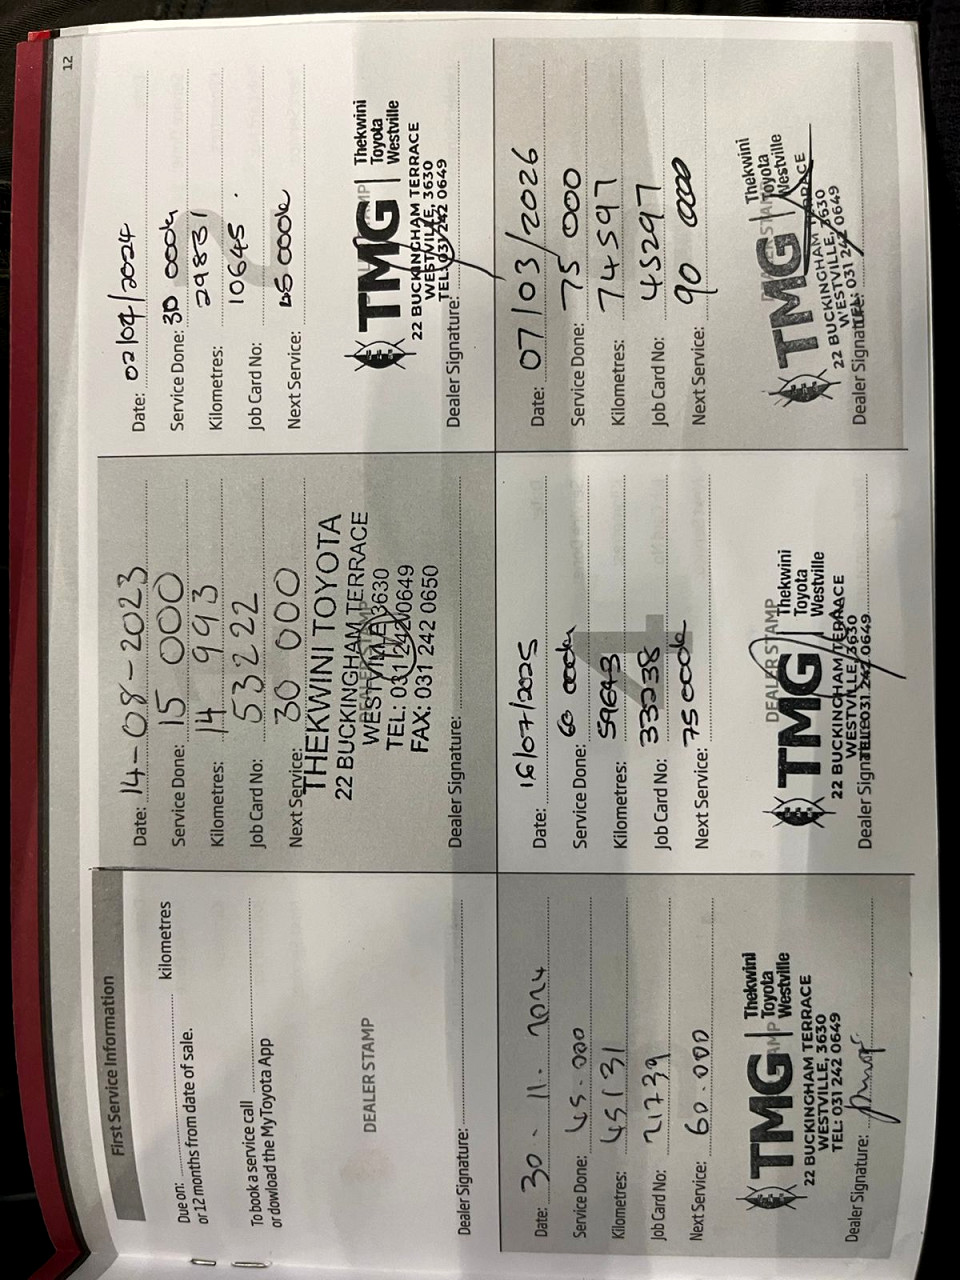 12
First Service Information
Due on: kilometres
or 12 months from date of sale.
To book a service call
or dowload the MyToyota App
DEALER STAMP
Dealer Signature:
Date: 14-08-2023
Service Done: 15 000
Kilometres: 14 993
Job Card No: 53222
Next Service: 30 000
THEKWINI TOYOTA
22 BUCKINGHAM TERRACE
WESTVILLE 3630
TEL: 031 242 0649
FAX: 031 242 0650
Dealer Signature:
Date: 02/04/2024
Service Done: 30 000k
Kilometres: 29831
Job Card No: 10645
Next Service: 45 000k
TMG Thekwini
Toyota
Westville
22 BUCKINGHAM TERRACE
WESTVILLE, 3630
TEL: 031 242 0649
Dealer Signature:
Date: 30. 11. 2024
Service Done: 45.000
Kilometres: 45131
Job Card No: 21739
Next Service: 60.000
TMG Thekwini
Toyota
Westville
22 BUCKINGHAM TERRACE
WESTVILLE, 3630
TEL: 031 242 0649
Dealer Signature:
4
Date: 16/07/2025
Service Done: 60 000k
Kilometres: 59643
Job Card No: 33238
Next Service: 75 000k
DEALER STAMP
TMG Thekwini
Toyota
Westville
22 BUCKINGHAM TERRACE
WESTVILLE, 3630
TEL: 031 242 0649
Dealer Signature:
Date: 07/03/2026
Service Done: 75 000
Kilometres: 74597
Job Card No: 45297
Next Service: 90 000
TMG Thekwini
Toyota
Westville
22 BUCKINGHAM TERRACE
WESTVILLE, 3630
TEL: 031 242 0649
Dealer Signature: